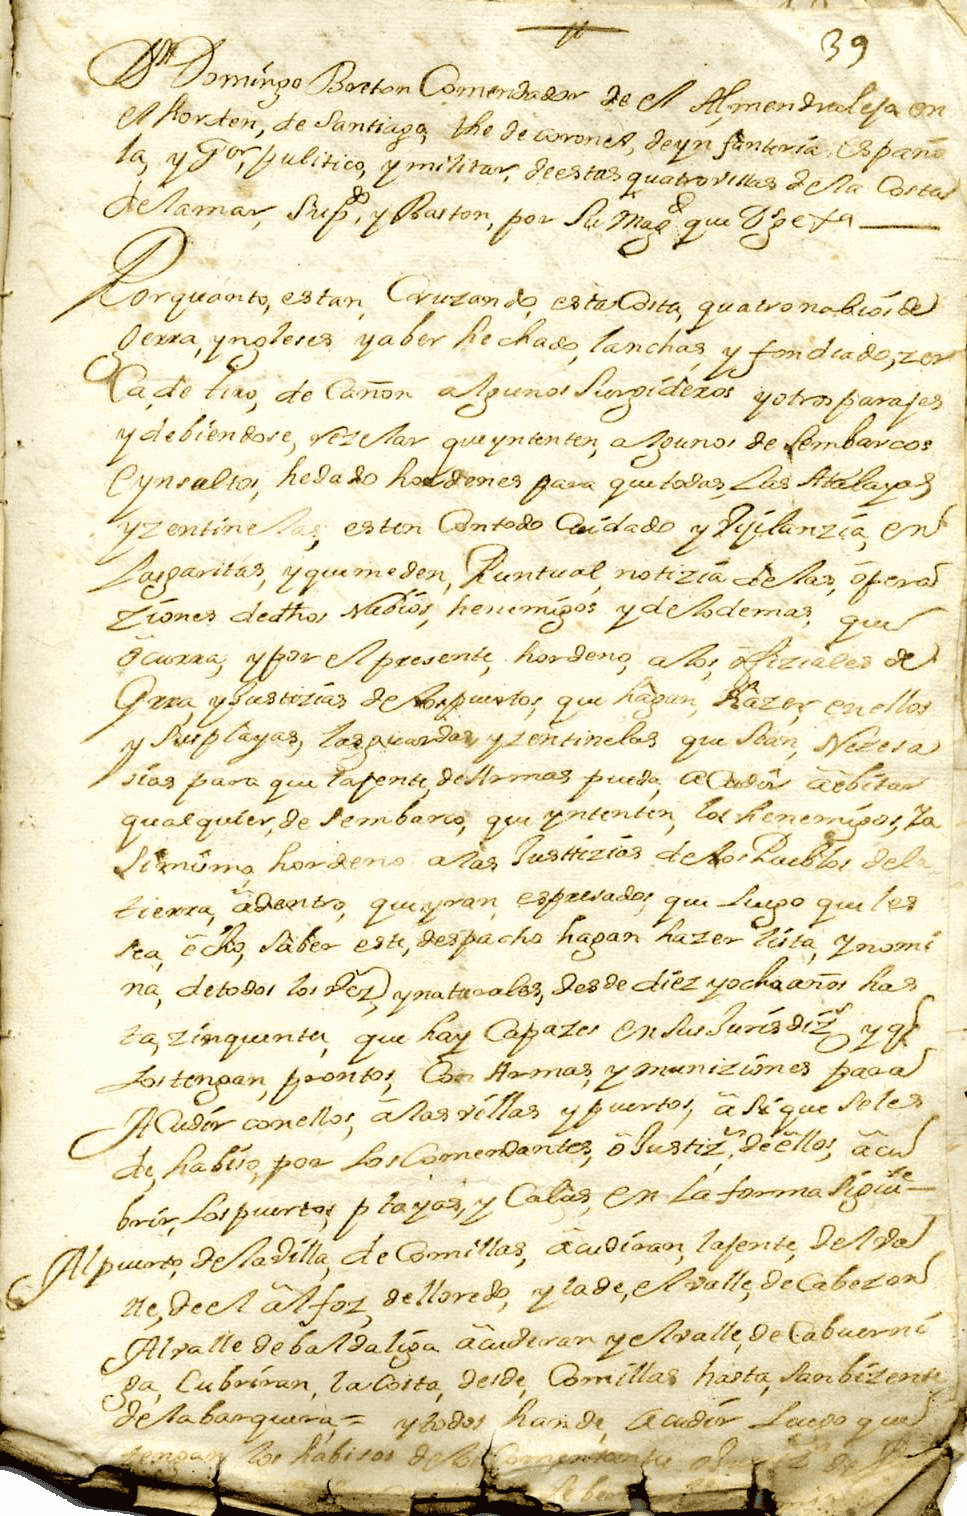 39
Dn Domingo Breton Comendador de el Almendralejo en
el horden, de Santiago, the de coronel, de ynfanteria españo
la, y Gor, pulitico, y militar, de estas quatro villas de la Costa
de la mar, Supds, y Baston, por Su Magd que Ds ge
Por quanto, estan, Cruzando, esta Costa, quatro nabios de
gerra, yngleses y aber hechado, lanchas, y fondeado, zer
Ca, de tiro, de Cañon algunos Surgideros y otros parajes
y debiendose, rezelar que yntenten, algunos desembarcos
e ynsultos, he dado hordenes para que todas, las Atalayas
y zentinelas, esten Con todo Cuidado y Vijilanzia, en
las garitas, y que me den, Puntual, notizia de las, opera
ziones de dhos Nabios, henemigos y de lo demas, que
ocurra, y por el presente, hordeno, a los, ofiziales de
Grra y Justizias de los puertos, que hagan, hazer, en ellos
y Sus playas, las guardas, y zentinelas que Sean, Nezesa
rias para que la jente, de Armas pueda, aCudir a ebitar
qualquier, desembarco, que yntenten, los henemigos, Ya
Simismo hordeno a las Justizias de los Pueblos de la
tierra, adentro, que yran, espresados, que luego que les
sea, echo, Saber este, despacho hagan hazer lista, y nomi
na, de todos los Vez, y naturales, desde diez y ocho años has
ta, zinquenta, que hay Capazes en Sus Jurisdizs y qe
los tengan, prontos, Con Armas, y muniziones para
ACudir con ellos, a las villas y puertos, a Si que Se les
de, habiso, por los Comendantes, o Justizs, de ellos, a cu
brir, los puertos, playas, y Calas, en la forma Siguite
Al puerto, de la Villa, de Comillas, acudiran, la jente, del Va
lle, de el alfoz, de lloredo, y la de, el valle, de Cabezon
Al valle de baldaliga acudiran y el valle, de Cabuerni
ga, Cubriran, la Costa, desde, Comillas hasta, San bizente
de la barquera, = y todos han de, acudir luego que
tengan los habisos de los Comendantes o Justizs